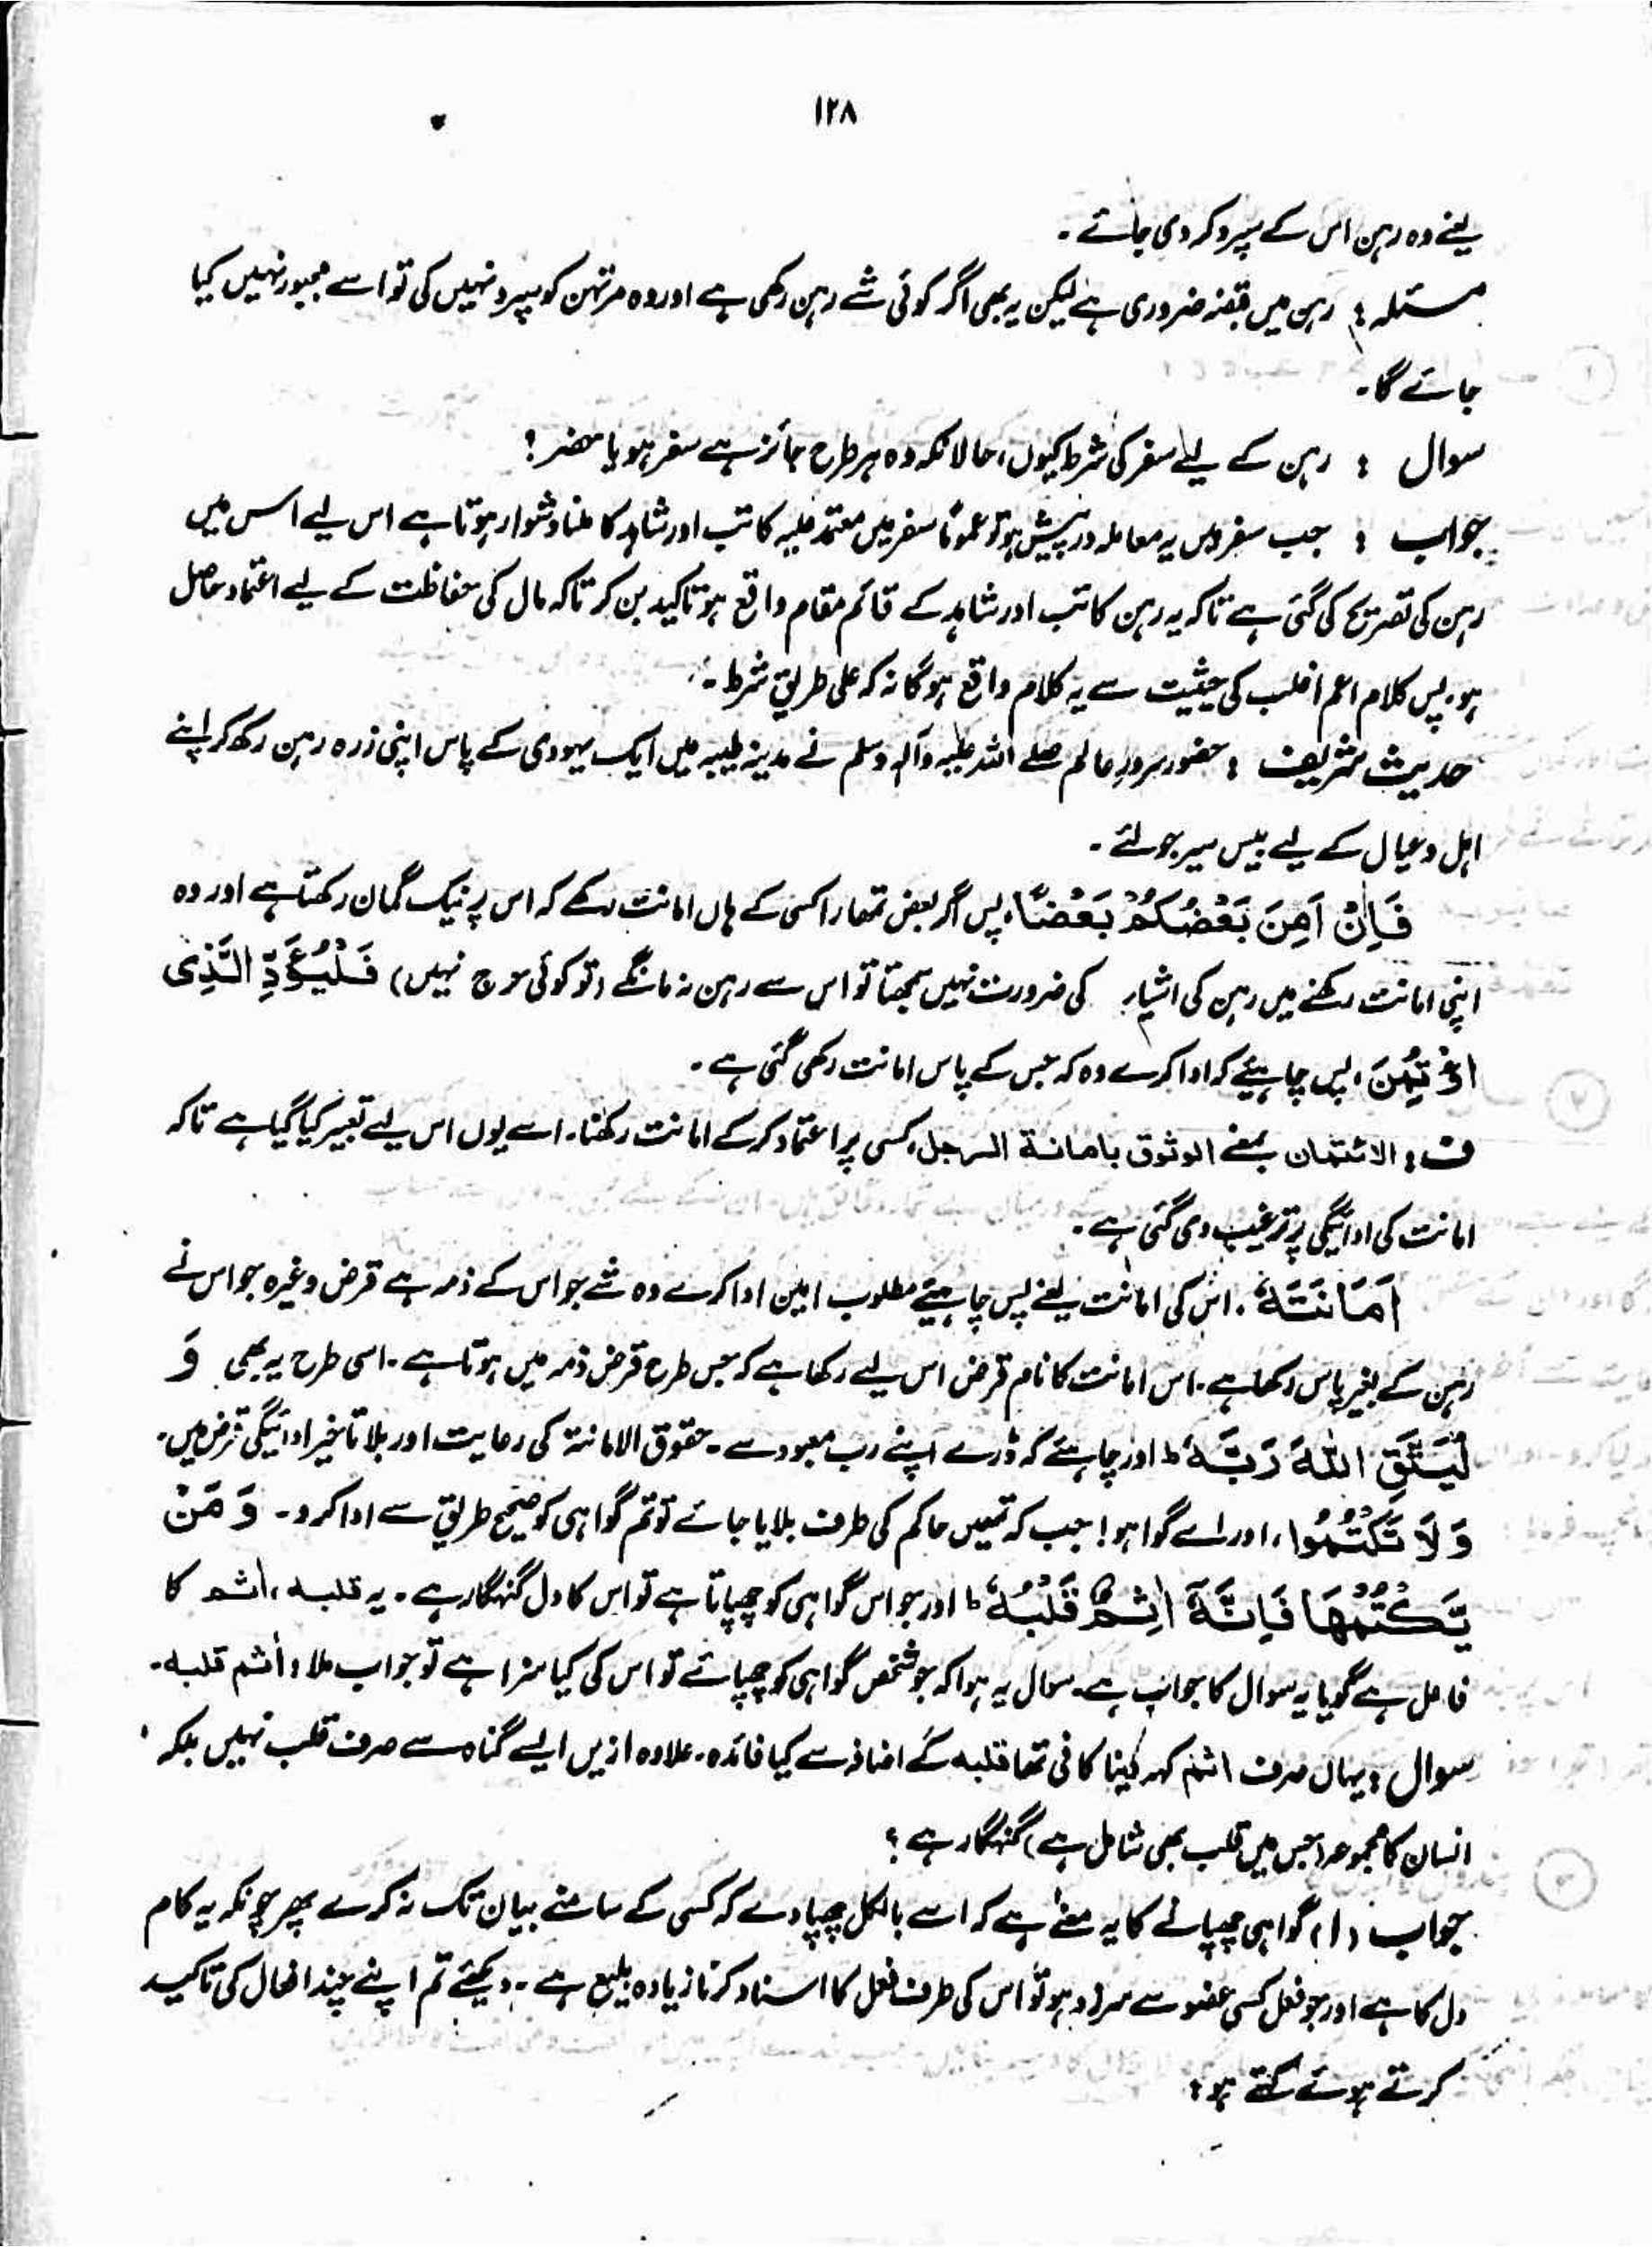 ۱۲۸
یعنے وہ رہن اس کے سپرد کر دی جائے ۔
مسئلہ : رہن میں قبضہ ضروری ہے لیکن یہ بھی اگر کوئی شے رہن رکھی ہے اور وہ مرتہن کو سپرد نہیں کی تو اسے مجبور نہیں کیا
جائے گا ۔
سوال : رہن کے لیے سفر کی شرط کیوں ، حالانکہ وہ ہر طرح جائز ہے سفر ہو یا حضر ؟
جواب : جب سفر میں یہ معاملہ درپیش ہو تو عموماً سفر میں معتمد علیہ کاتب اور شاہد کا ملنا دشوار ہوتا ہے اس لیے اس میں
رہن کی تصریح کی گئی ہے تاکہ یہ رہن کاتب اور شاہد کے قائم مقام واقع ہو تاکید بن کر تاکہ مال کی حفاظت کے لیے اعتماد حاصل
ہو ۔ پس کلام اعم اغلب کی حیثیت سے یہ کلام واقع ہوگا نہ کہ علی طریق شرط ۔
حدیث شریف : حضور سرورِ عالم صلے اللہ علیہ وآلہ وسلم نے مدینہ طیبہ میں ایک یہودی کے پاس اپنی زرہ رہن رکھ کر اپنے
اہل و عیال کے لیے بیس سیر جو لئے ۔
فَاِنْ اَمِنَ بَعْضُكُمْ بَعْضًا ، پس اگر بعض تمھارا کسی کے ہاں امانت رکھے کہ اس پر نیک گمان رکھتا ہے اور وہ
اپنی امانت رکھنے میں رہن کی اشیاء کی ضرورت نہیں سمجھتا تو اس سے رہن نہ مانگے (تو کوئی حرج نہیں) فَلْيُؤَدِّ الَّذِى
اؤْتُمِنَ ، پس چاہیئے کہ ادا کرے وہ کہ جس کے پاس امانت رکھی گئی ہے ۔
ف : الائتمان بمعنے الوثوق بامانة الرجل ، کسی پر اعتماد کر کے امانت رکھنا ۔ اسے یوں اس لیے تعبیر کیا گیا ہے تاکہ
امانت کی ادائیگی پر ترغیب دی گئی ہے ۔
اَمَانَتَهٗ ، اس کی امانت یعنے پس چاہیئے مطلوب امین ادا کرے وہ شے جو اس کے ذمہ ہے قرض وغیرہ جو اس نے
رہن کے بغیر پاس رکھا ہے ۔ اس امانت کا نام قرض اس لیے رکھا ہے کہ جس طرح قرض ذمہ میں ہوتا ہے ۔ اسی طرح یہ بھی وَ
لْيَتَّقِ اللّٰهَ رَبَّهٗ ط اور چاہیئے کہ ڈرے اپنے رب معبود سے ۔ حقوق الامانۃ کی رعایت اور بلا تاخیر ادائیگی قرض میں ۔
وَ لَا تَكْتُمُوا ، اور اے گواہو ! جب کہ تمہیں حاکم کی طرف بلایا جائے تو تم گواہی کو صحیح طریق سے ادا کرو ۔ وَ مَنْ
يَّكْتُمْهَا فَاِنَّهٗٓ اٰثِمٌ قَلْبُهٗ ط اور جو اس گواہی کو چھپاتا ہے تو اس کا دل گنہگار ہے ۔ یہ قلبه ، اٰثم کا
فاعل ہے گویا یہ سوال کا جواب ہے ۔ سوال یہ ہوا کہ جو شخص گواہی کو چھپائے تو اس کی کیا سزا ہے تو جواب ملا ، اٰثم قلبه ۔
سوال : یہاں صرف اٰثم کہہ دینا کافی تھا قلبه کے اضافہ سے کیا فائدہ ۔ علاوہ ازیں ایسے گناہ سے صرف قلب نہیں بلکہ
انسان کا مجموعہ (جس میں قلب بھی شامل ہے) گنہگار ہے ؟
جواب (۱) گواہی چھپانے کا یہ معنے ہے کہ اسے بالکل چھپا دے کہ کسی کے سامنے بیان تک نہ کرے پھر چونکہ یہ کام
دل کا ہے اور جو فعل کسی عضو سے سرزد ہو تو اس کی طرف فعل کا اسناد کرنا زیادہ بلیغ ہے ۔ دیکھئے تم اپنے چند افعال کی تاکید
کرتے ہوئے کہتے ہو :